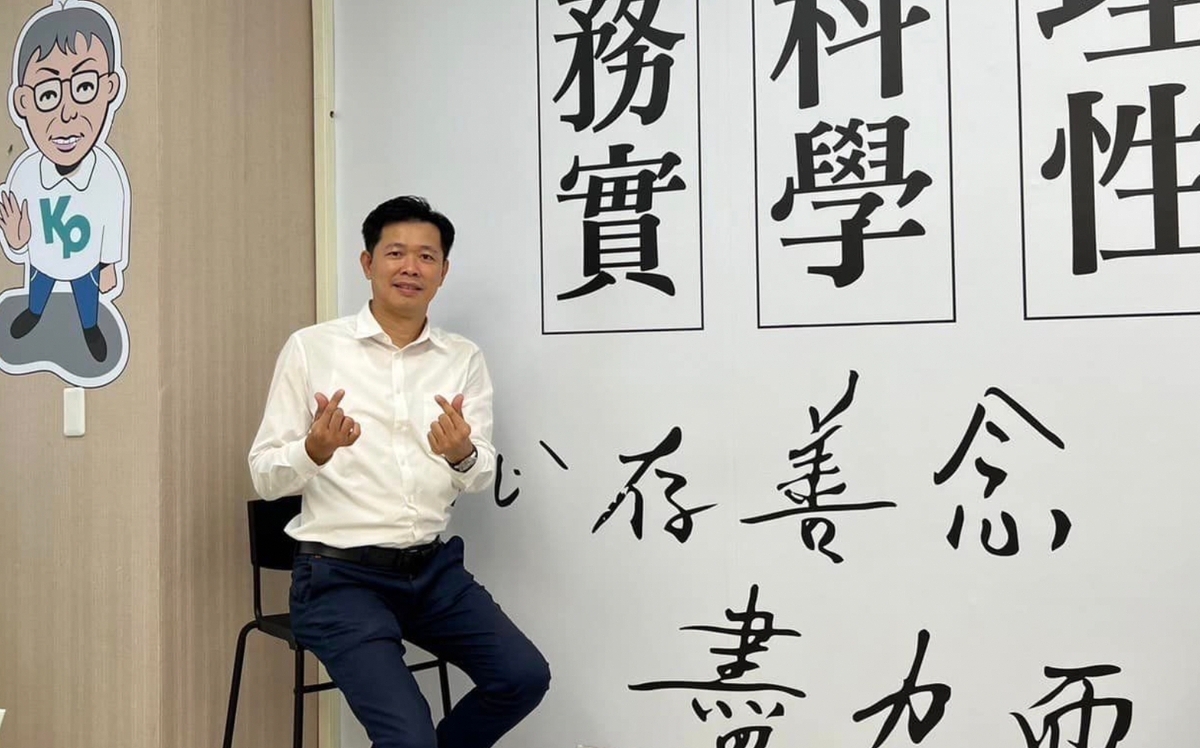 KP
務實
科學
理性
心存善念
盡力而